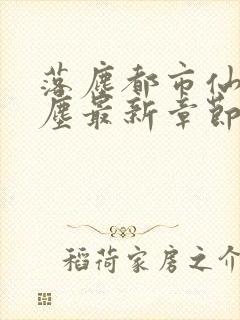 落尘都市仙
尘最新章節
稻荷家房之介